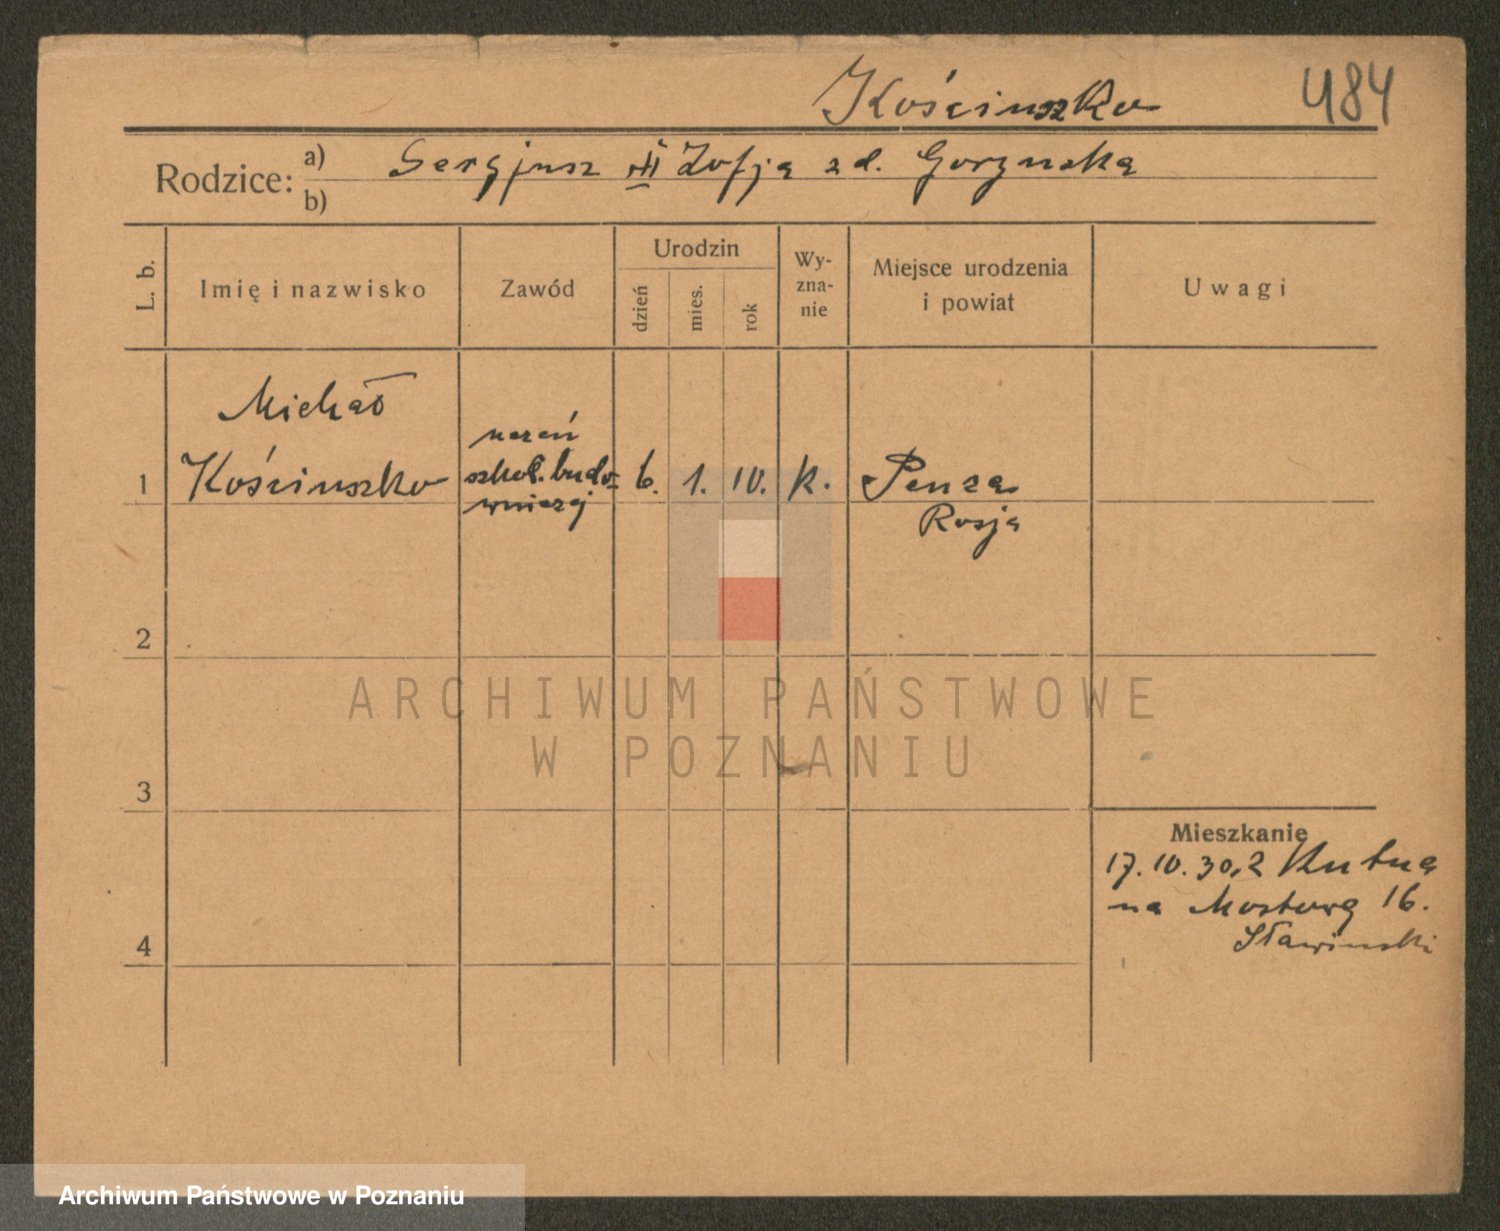 Kościuszko 484
Rodzice: a) Sergjusz i Zofja zd. Gorzuska
b)
L. b. Imię i nazwisko Zawód Urodzin dzień mies. rok Wy-zna-nie Miejsce urodzenia i powiat Uwagi
Michał
uczeń
1 Kościuszko szkoł. budo- 6. 1. 10. k. Penza
wniczej Rosja
2
ARCHIWUM PAŃSTWOWE
W POZNANIU
3
Mieszkanie
17.10.30, z Kutna
na Mostową 16.
Sławinski
4
Archiwum Państwowe w Poznaniu